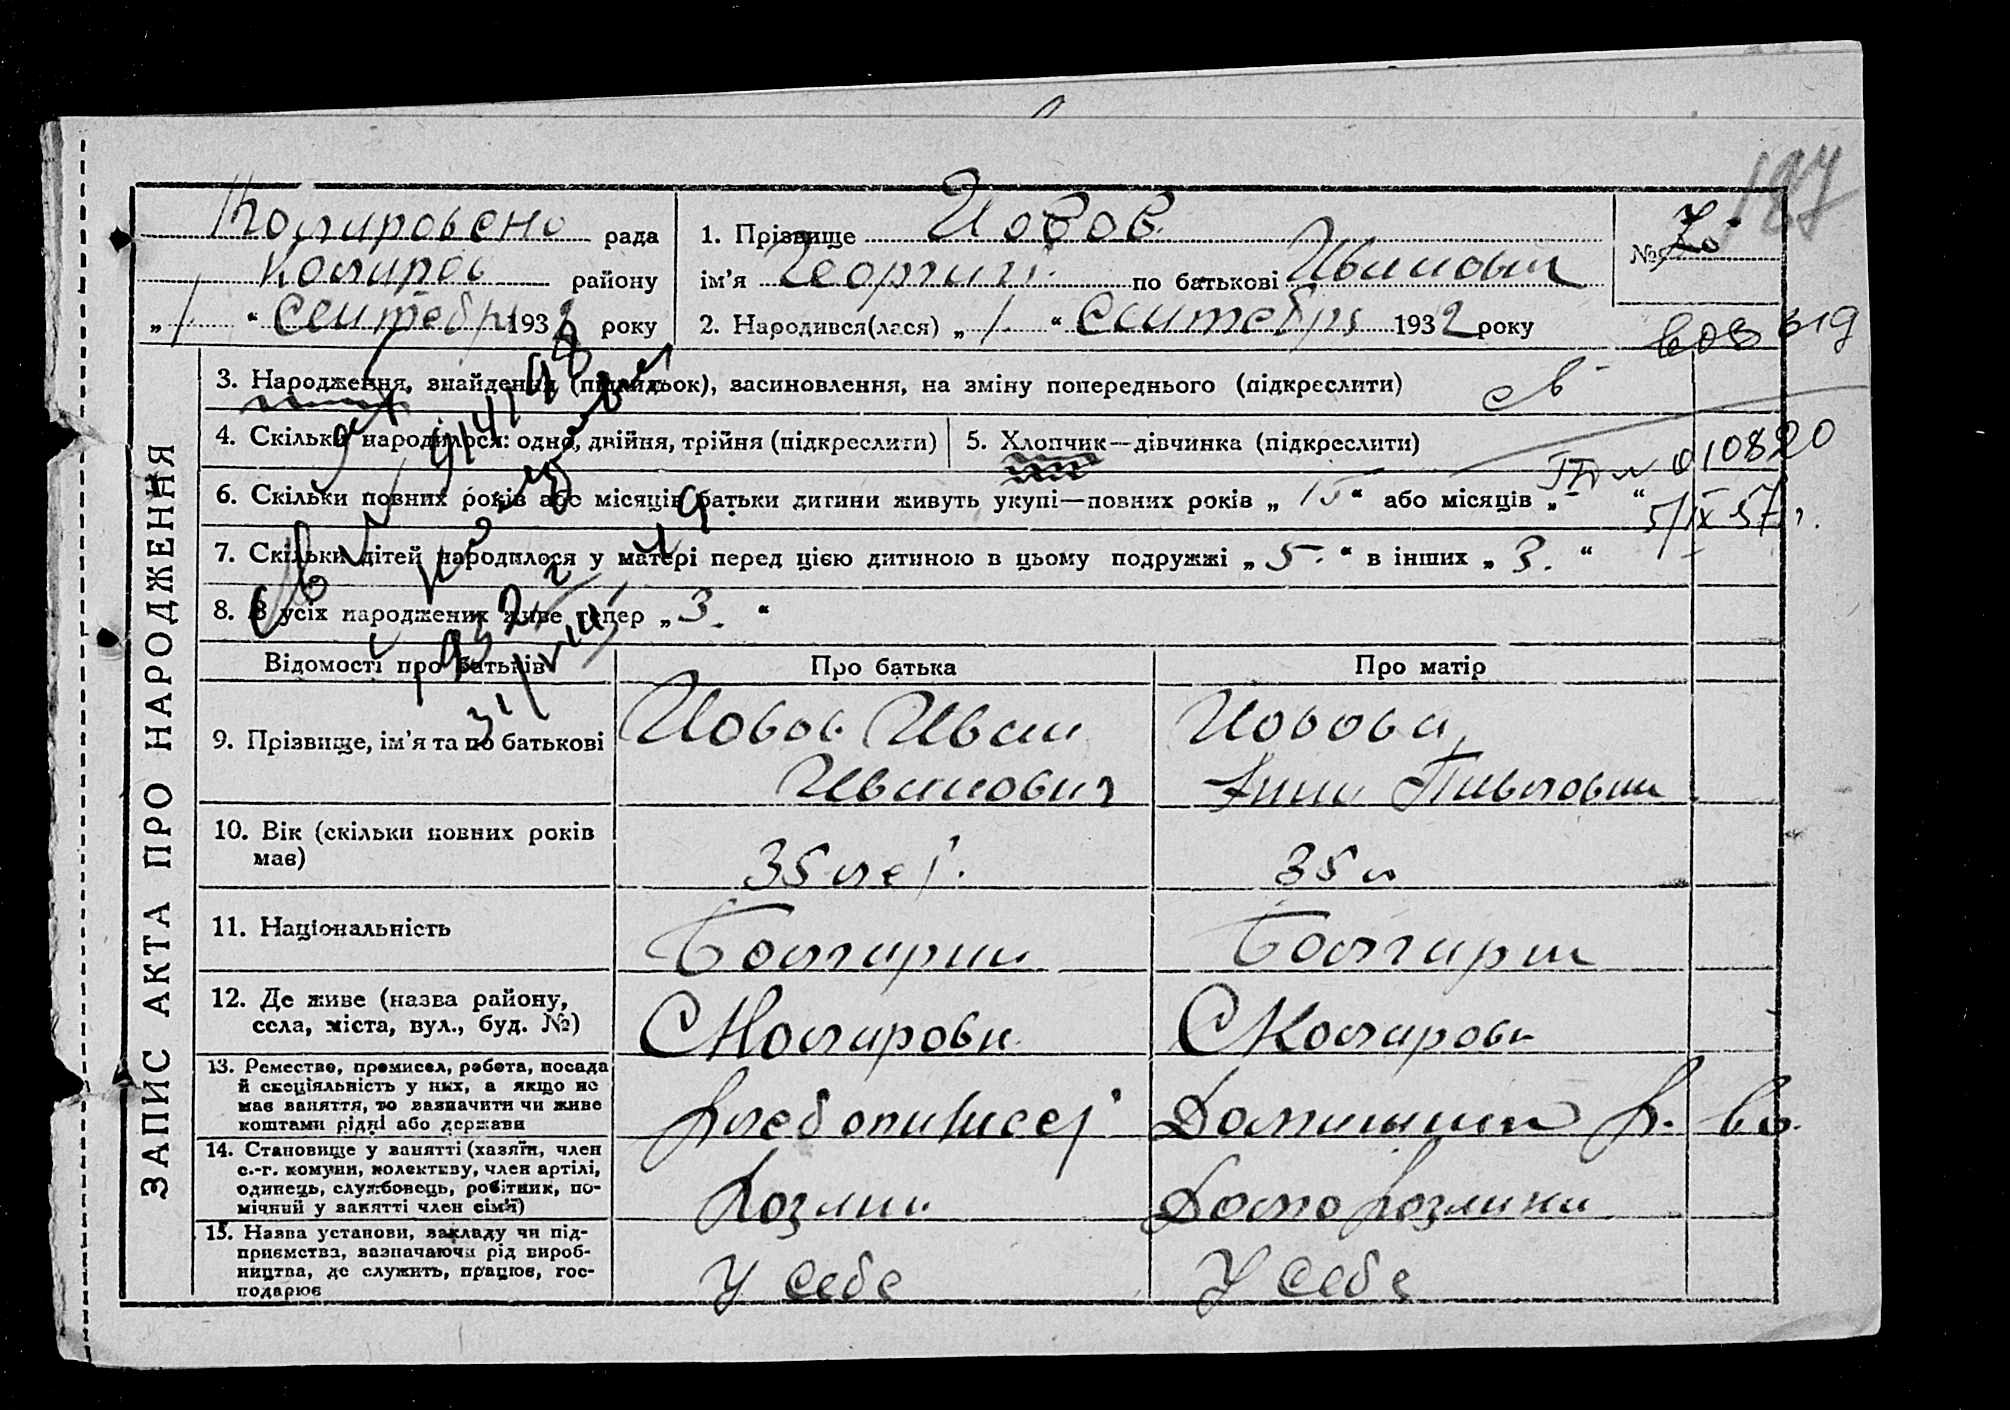 187
Коларовско рада
Коларов району
„ 1 “ Сентебря 1932 року
1. Прізвище Иовов
ім’я Георгий по батькові Иванович
2. Народився(лася) „ 1. “ Сентебря 1932 року
№ 70
ЗАПИС АКТА ПРО НАРОДЖЕННЯ
3. Народження, знайдення (підкидьок), засиновлення, на зміну попереднього (підкреслити)
4. Скільки народилося: одно, двійня, трійня (підкреслити)
5. Хлопчик—дівчинка (підкреслити)
010820
6. Скільки повних років або місяців батьки дитини живуть укупі—повних років „ 15 “ або місяців „ - “
5/IX 57 г.
7. Скільки дітей народилося у матері перед цією дитиною в цьому подружжі „ 5. “ в інших „ 3. “
8. З усіх народжених живе тепер „ 3. “
Відомості про батьків
Про батька
Про матір
9. Прізвище, ім’я та по батькові
Иовов Иван
Иванович
Иовова
Анна Павловна
10. Вік (скільки повних років
має)
35 лет.
35 л
11. Національність
Болгарин
Болгарка
12. Де живе (назва району,
села, міста, вул., буд. №)
С Коларовка
С Коларовка
13. Ремество, промисел, робота, посада
й спеціяльність у них, а якщо не
має заняття, то зазначити чи живе
коштами рідні або держави
Хлебопашест
Домашнее х. во.
14. Становище у занятті (хазяїн, член
с.-г. комуни, колективу, член артілі,
одинець, службовець, робітник, по-
мічний у занятті член сім’ї)
Хозяин
Домохозяйка
15. Назва установи, закладу чи під-
приємства, зазначаючи рід вироб-
ництва, де служить, працює, гос-
подарює
У себе
У себе